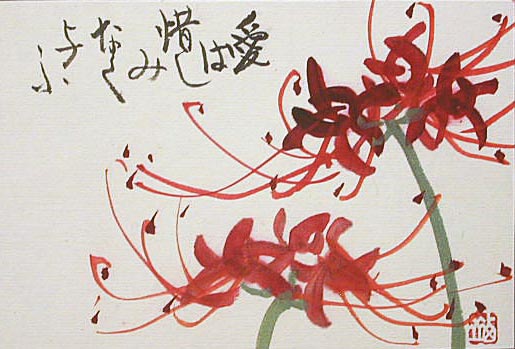 愛は
惜し
み
なく
与ふ